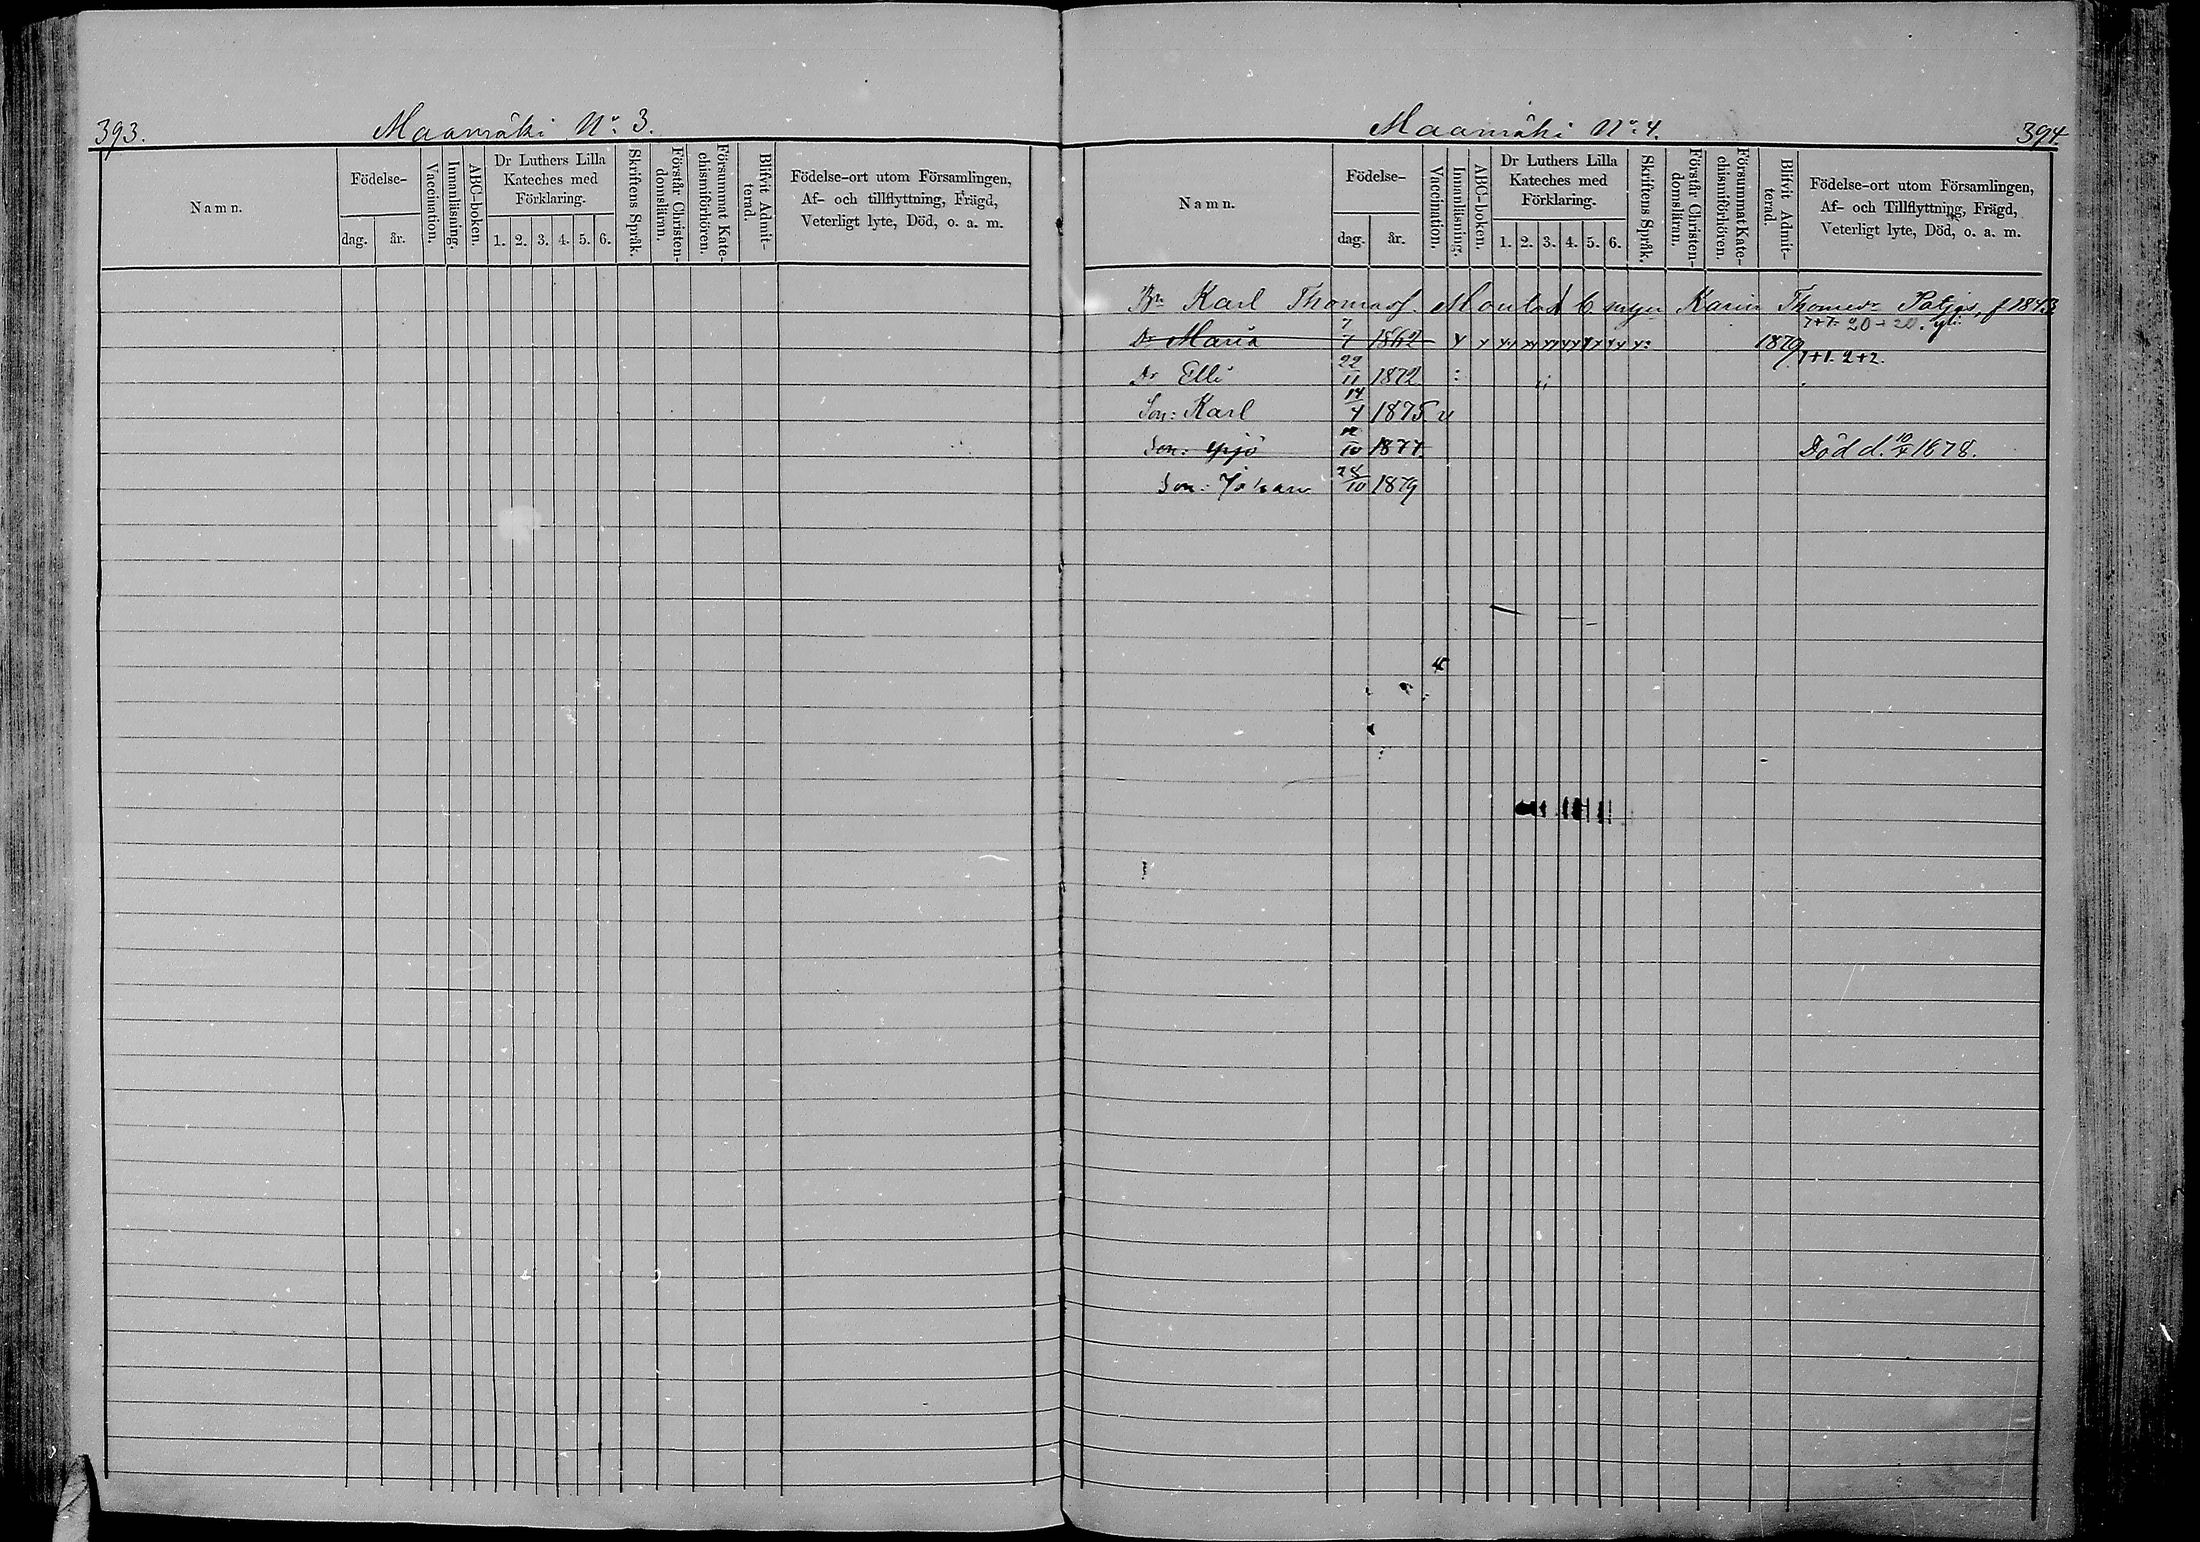 393. Maamäki No: 3.
Namn.
Födelse-
dag. år.
Vaccination.
Innanläsning.
ABC-boken.
Dr Luthers Lilla
Kateches med
Förklaring.
1. 2. 3. 4. 5. 6.
Skriftens Språk.
Förstår Christen-
domsläran.
Försummat Kate-
chismiförhören.
Blifvit Admit-
terad.
Födelse-ort utom Församlingen,
Af- och tillflyttning, Frägd,
Veterligt lyte, Död, o. a. m.
Maamäki No: 4. 394.
Namn.
Födelse-
dag. år.
Vaccination.
Innanläsning.
ABC-boken.
Dr Luthers Lilla
Kateches med
Förklaring.
1. 2. 3. 4. 5. 6.
Skriftens Språk.
Förstår Christen-
domsläran.
Försummat Kate-
chismiförhören.
Blifvit Admit-
terad.
Födelse-ort utom Församlingen,
Af- och Tillflyttning, Frägd,
Veterligt lyte, Död, o. a. m.
Bn Karl Thomasf. Karin Thomedr f 1843
Dr Maria 1862 1879 7+7- 20+20.
Dr Elli 22/11 1872 1+1. 2+2.
Son: Karl 14/4 1875 v
Son: Yrjö 12/10 1877. Död d. 10/4 1878.
Son: Johan 28/10 1879